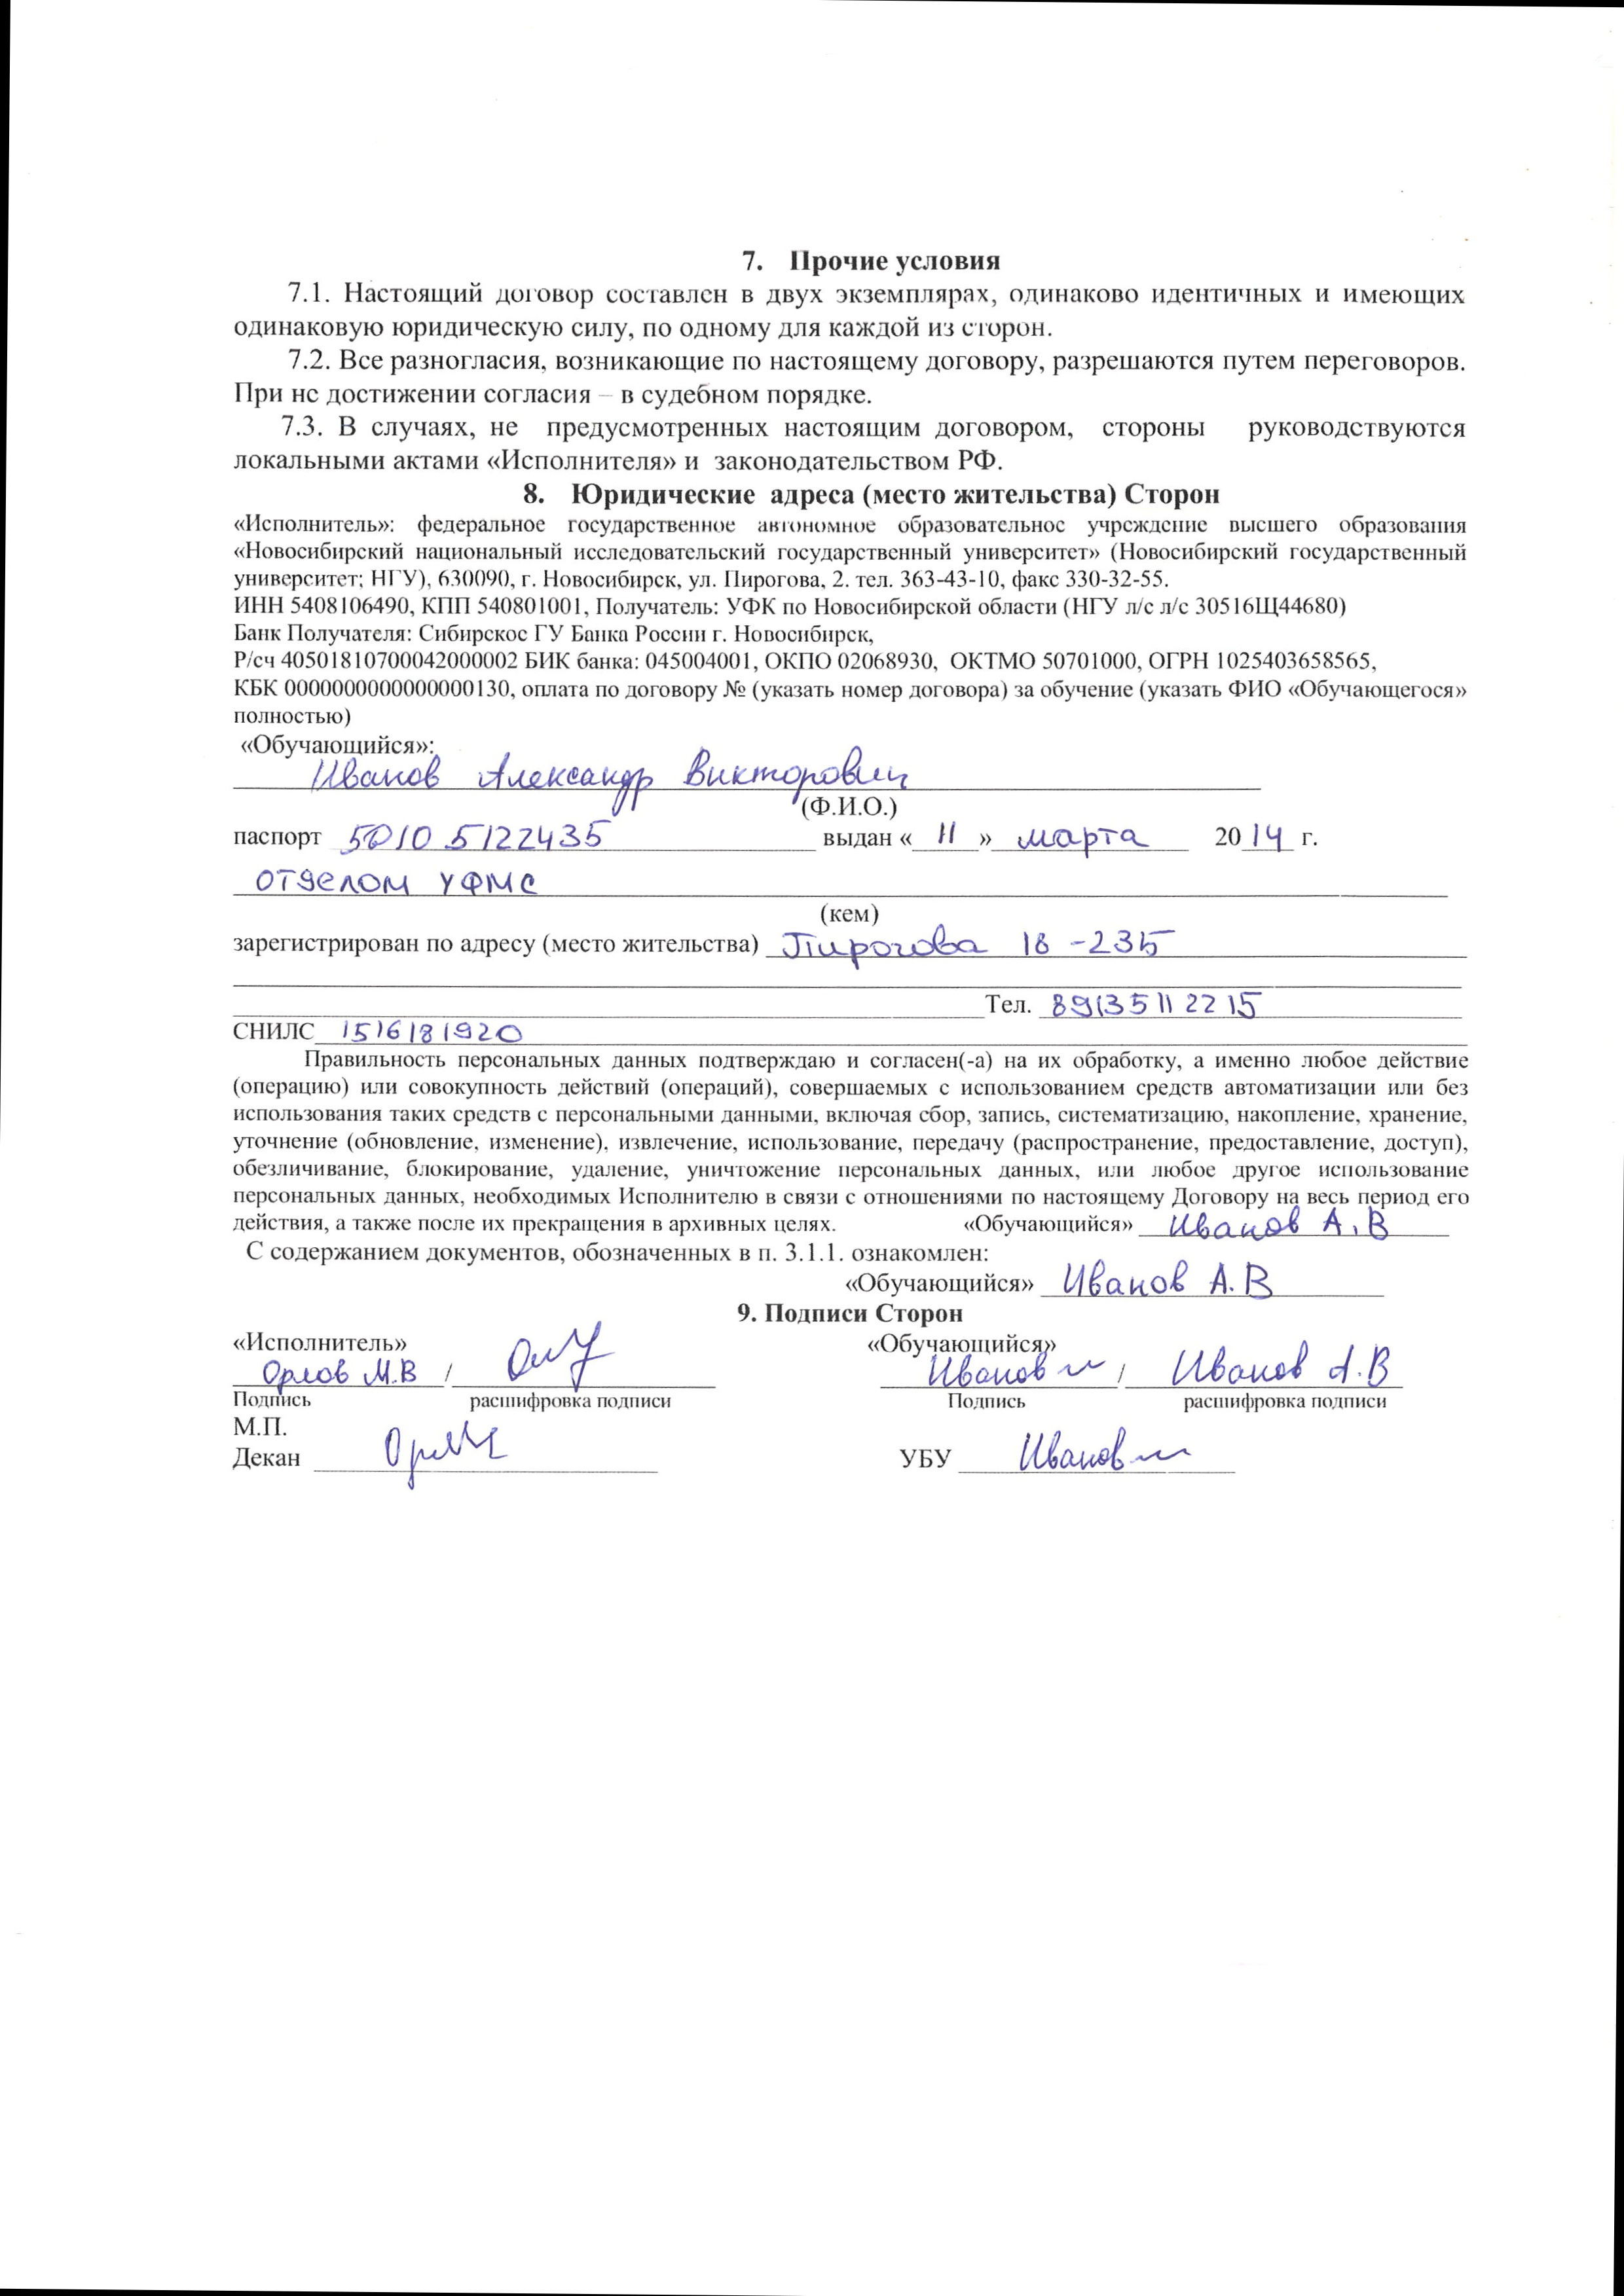 7. Прочие условия
7.1. Настоящий договор составлен в двух экземплярах, одинаково идентичных и имеющих
одинаковую юридическую силу, по одному для каждой из сторон.
7.2. Все разногласия, возникающие по настоящему договору, разрешаются путем переговоров.
При не достижении согласия – в судебном порядке.
7.3. В случаях, не предусмотренных настоящим договором, стороны руководствуются
локальными актами «Исполнителя» и законодательством РФ.
8. Юридические адреса (место жительства) Сторон
«Исполнитель»: федеральное государственное автономное образовательное учреждение высшего образования
«Новосибирский национальный исследовательский государственный университет» (Новосибирский государственный
университет; НГУ), 630090, г. Новосибирск, ул. Пирогова, 2. тел. 363-43-10, факс 330-32-55.
ИНН 5408106490, КПП 540801001, Получатель: УФК по Новосибирской области (НГУ л/с л/с 30516Щ44680)
Банк Получателя: Сибирское ГУ Банка России г. Новосибирск,
Р/сч 40501810700042000002 БИК банка: 045004001, ОКПО 02068930, ОКТМО 50701000, ОГРН 1025403658565,
КБК 00000000000000000130, оплата по договору № (указать номер договора) за обучение (указать ФИО «Обучающегося»
полностью)
«Обучающийся»:
Иванов Александр Викторович
(Ф.И.О.)
паспорт 5010 5122435 выдан « 11 » марта 2014 г.
отделом УФМС
(кем)
зарегистрирован по адресу (место жительства) Пирогова 18 -235
Тел. 8913511 22 15
СНИЛС 1516181920
Правильность персональных данных подтверждаю и согласен(-а) на их обработку, а именно любое действие
(операцию) или совокупность действий (операций), совершаемых с использованием средств автоматизации или без
использования таких средств с персональными данными, включая сбор, запись, систематизацию, накопление, хранение,
уточнение (обновление, изменение), извлечение, использование, передачу (распространение, предоставление, доступ),
обезличивание, блокирование, удаление, уничтожение персональных данных, или любое другое использование
персональных данных, необходимых Исполнителю в связи с отношениями по настоящему Договору на весь период его
действия, а также после их прекращения в архивных целях. «Обучающийся» Иванов А.В
С содержанием документов, обозначенных в п. 3.1.1. ознакомлен:
«Обучающийся» Иванов А.В
9. Подписи Сторон
«Исполнитель» «Обучающийся»
Орлов М.В / Иванов / Иванов А.В
Подпись расшифровка подписи Подпись расшифровка подписи
М.П.
Декан УБУ Иванов